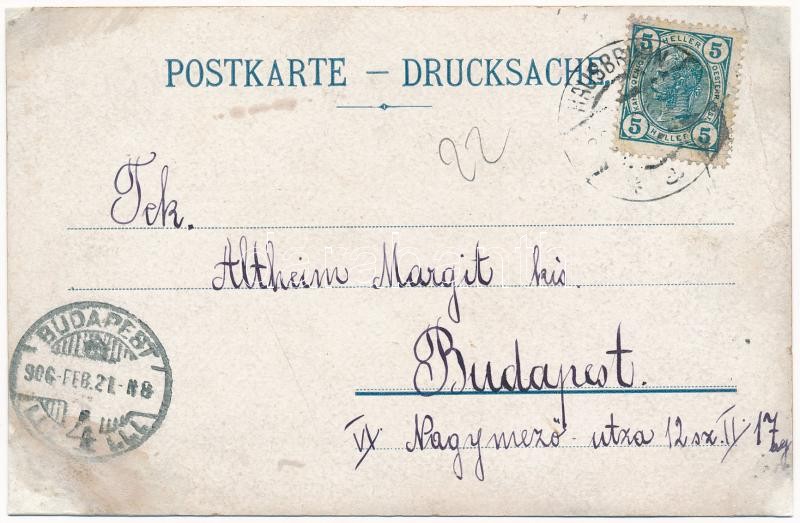 POSTKARTE – DRUCKSACHE.
5 HELLER 5
5 HELLER 5
22
Tek.
Altheim Margit kis.
Budapest.
VI Nagymező-utza 12 sz. II. 17
BUDAPEST
906-FEB.21.-N8